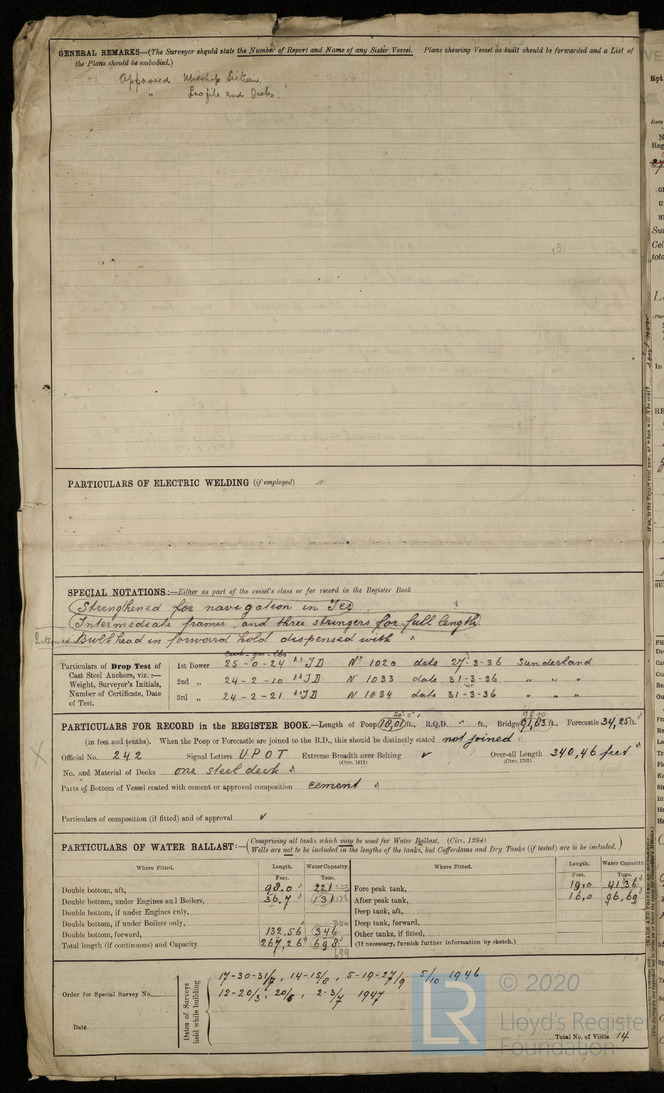 GENERAL REMARKS—(The Surveyor should state the Number of Report and Name of any Sister Vessel. Plans showing Vessel as built should be forwarded and a List of
the Plans should be embodied.)
Approved Midship Section.
" Profile and Decks.
PARTICULARS OF ELECTRIC WELDING (if employed)
SPECIAL NOTATIONS:—Either as part of the vessel's class or for record in the Register Book
Strengthened for navigation in Ice
Intermediate frames and three stringers for full length
Bulkhead in forward hold dispensed with
cwt-qu-lbs
Particulars of Drop Test of
Cast Steel Anchors, viz.:—
Weight, Surveyor's Initials,
Number of Certificate, Date
of Test.
1st Bower 25-0-24 JD No 1020 date 27-3-36 Sunderland
2nd " 24-2-10 JD No 1033 date 31-3-36 " " "
3rd " 24-2-21 JD No 1034 date 31-3-36 " " "
PARTICULARS FOR RECORD in the REGISTER BOOK.—Length of Poop 10,01 ft., R.Q.D. " ft., Bridge 91,03 ft., Forecastle 34,25 ft.
(in feet and tenths). When the Poop or Forecastle are joined to the B.D., this should be distinctly stated not joined
Official No. 242 Signal Letters UPOT Extreme Breadth over Belting ✓ Over-all Length 340,46 feet
(Circ. 1611) (Circ. 1703)
No. and Material of Decks one steel deck
Parts of Bottom of Vessel coated with cement or approved composition cement
Particulars of composition (if fitted) and of approval ✓
PARTICULARS OF WATER BALLAST:—(Comprising all tanks which may be used for Water Ballast. (Circ. 1284)
Wells are not to be included in the lengths of the tanks, but Cofferdams and Dry Tanks (if tested) are to be included.)
Where Fitted. Length. Water Capacity. Where Fitted. Length. Water Capacity
Feet. Tons. Feet. Tons.
Double bottom, aft, 98.0 221 Fore peak tank, 19,0 41,36
Double bottom, under Engines and Boilers, 36,7 131 After peak tank, 16,0 96,69
Double bottom, if under Engines only, Deep tank, aft,
Double bottom, if under Boilers only, Deep tank, forward,
Double bottom, forward, 132,56 346 Other tanks, if fitted,
Total length (if continuous) and Capacity 267,26 698 (If necessary, furnish further information by sketch.)
Order for Special Survey No.
Date
Dates of Surveys
held while building
17-30-31/7, 14-15/8, 5-19-27/9 5/10 1946
12-20/3, 20/5, 2-3/7 1947
Total No. of Visits 14
LR
© 2020
Lloyd's Register
Foundation